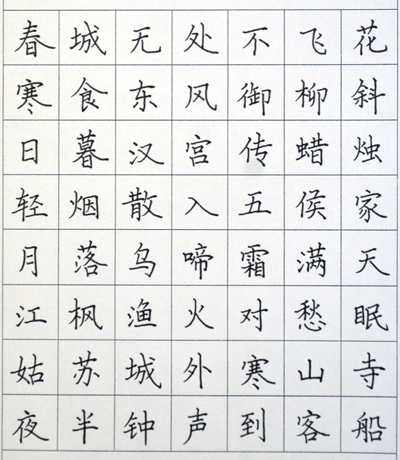 春城无处不飞花
寒食东风御柳斜
日暮汉宫传蜡烛
轻烟散入五侯家
月落乌啼霜满天
江枫渔火对愁眠
姑苏城外寒山寺
夜半钟声到客船